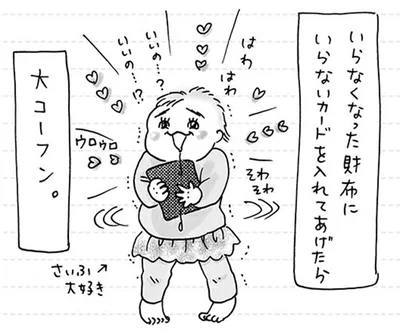 いらなくなった財布に
いらないカードを入れてあげたら
はわ
はわ
いいの…?
いいの…!?
そわ
そわ
ウロウロ
さいふ
大好き
大コーフン。